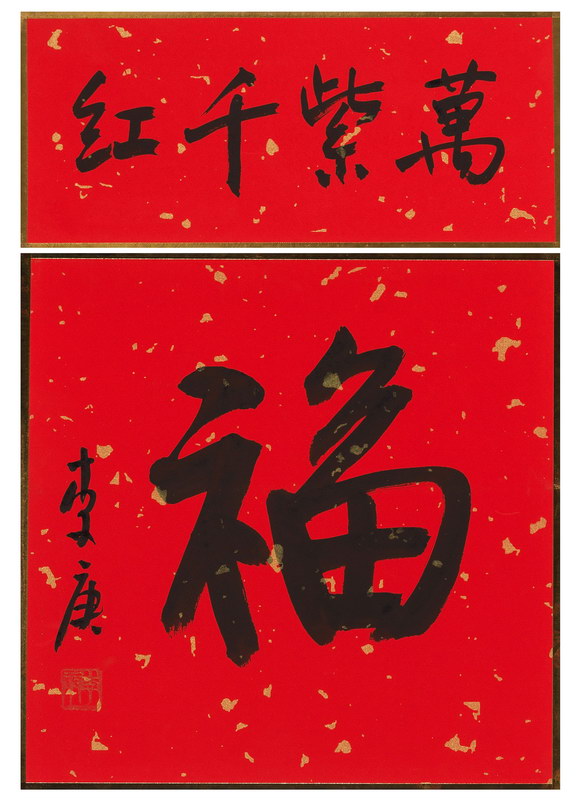 萬紫千红
福
李庚